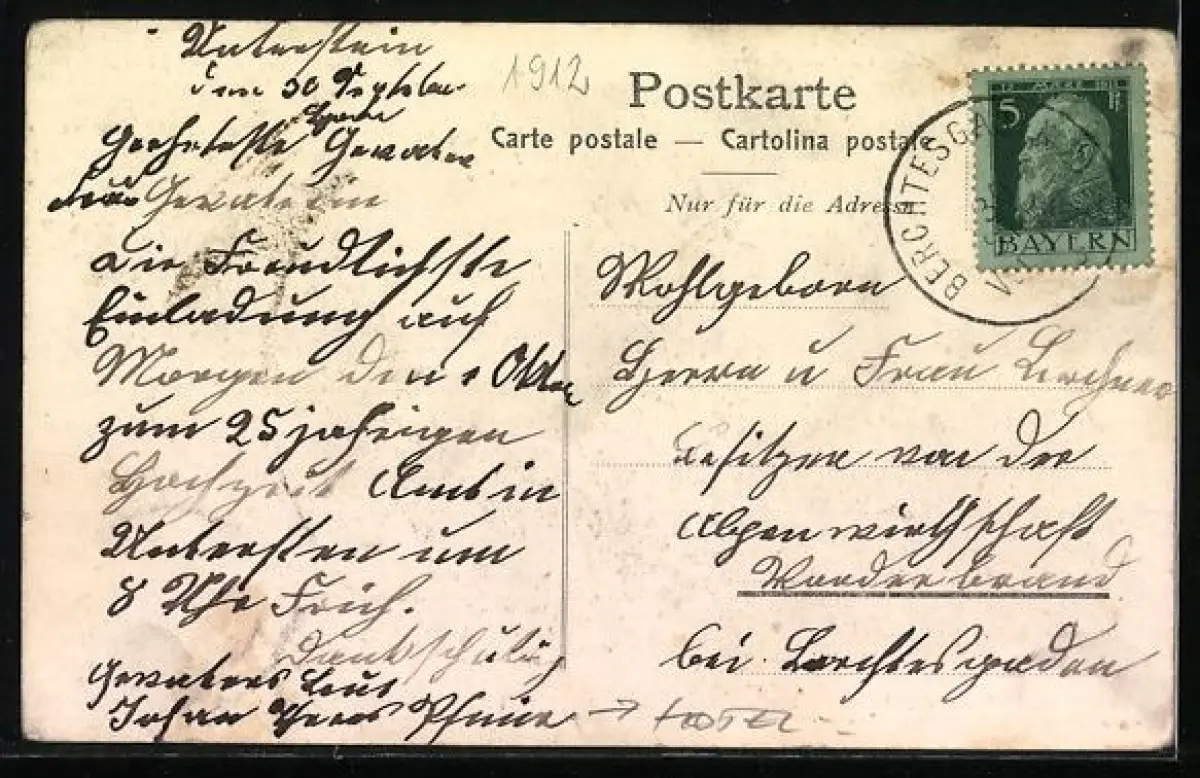 Unterstein
den 30 Septeber
1912
Geehrteste Herr Gevater
Frau Gevaterin
die Freundlichste
Einladung auf
Morgen den 1 Oktber
zum 25 jahrigen
Hochzeit Amt in
Unterstein um
8 Uhr Früh.
Dankschuldig
Gevaters Leut
Johan
Postkarte
Carte postale — Cartolina postale
Nur für die Adresse
5
BAYERN
BERCHTESGA
Wohlgeborn
Herrn u Frau Lechner
Besitzer von der
Alpenwirthschaft
Vorderbrand
bei Berchtesgaden